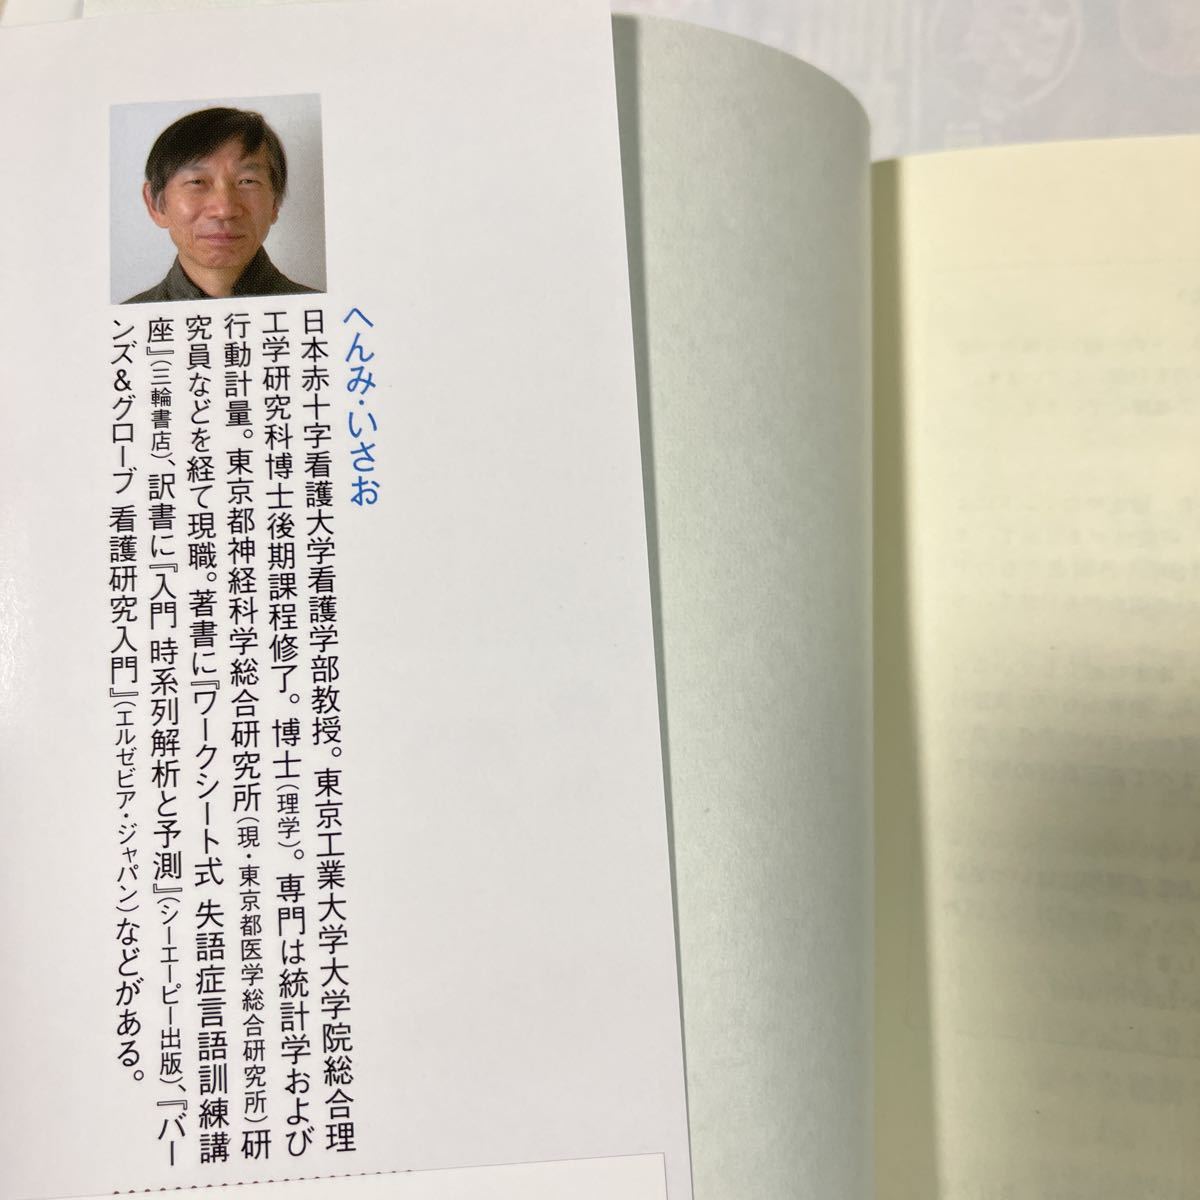 へんみ・いさお
日本赤十字看護大学看護学部教授。東京工業大学大学院総合理
工学研究科博士後期課程修了。博士(理学)。専門は統計学および
行動計量。東京都神経科学総合研究所(現・東京都医学総合研究所)研
究員などを経て現職。著書に『ワークシート式 失語症言語訓練講
座』(三輪書店)、訳書に『入門 時系列解析と予測』(シーエーピー出版)、『バー
ンズ&グローブ 看護研究入門』(エルゼビア・ジャパン)などがある。